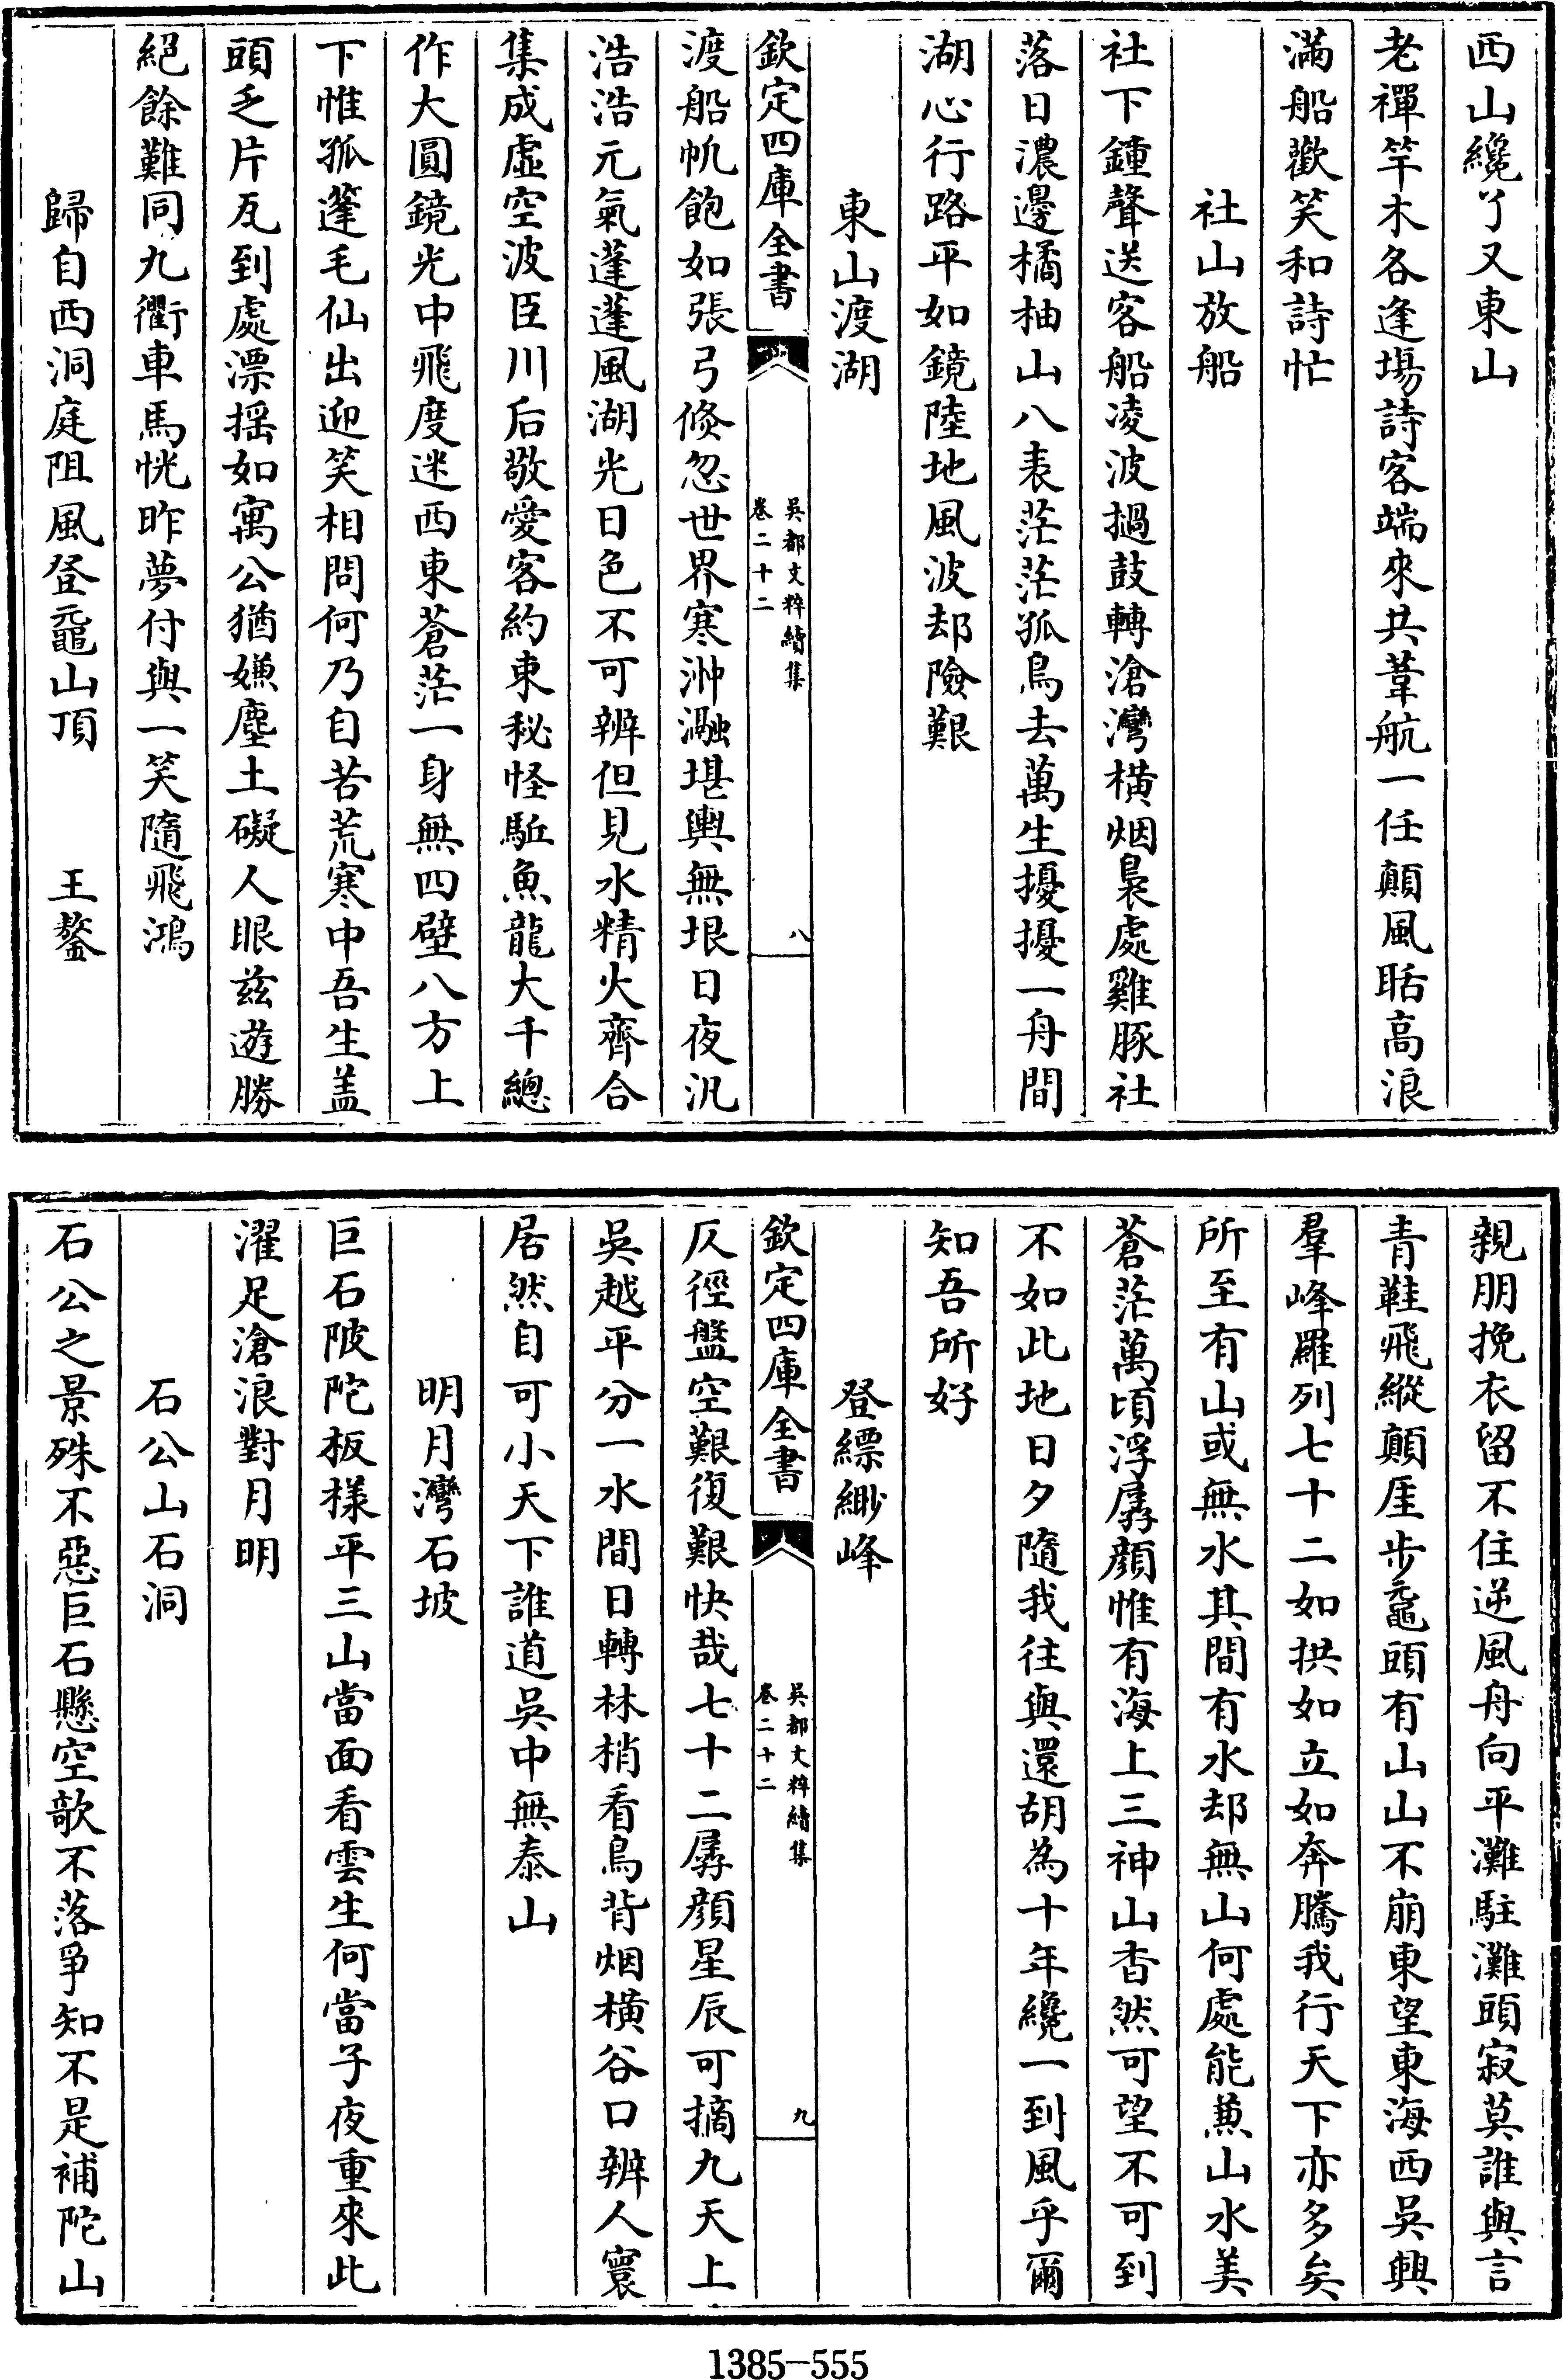 西山纔了又東山
老禪竿木各逢場詩客端來共葦航一任顛風聒高浪
滿船歡笑和詩忙
社山放船
社下鍾聲送客船凌波撾鼓轉滄灣橫烟裊處雞豚社
落日濃邊橘柚山八表茫茫孤鳥去萬生擾擾一舟間
湖心行路平如鏡陸地風波却險艱
東山渡湖
欽定四庫全書
吳都文粹續集
卷二十二
八
渡船帆飽如張弓倐忽世界寒沖瀜堪輿無垠日夜汎
浩浩元氣蓬蓬風湖光日色不可辨但見水精火齊合
集成虛空波臣川后敬愛客約束秘怪駈魚龍大千總
作大圓鏡光中飛度迷西東蒼茫一身無四壁八方上
下惟孤篷毛仙出迎笑相問何乃自苦荒寒中吾生盖
頭乏片瓦到處漂揺如寓公猶嫌塵土礙人眼兹遊勝
絕餘難同九衢車馬恍昨夢付與一笑隨飛鴻
歸自西洞庭阻風登黿山頂 王鏊
親朋挽衣留不住逆風舟向平灘駐灘頭寂莫誰與言
青鞋飛縱顛厓步黿頭有山山不崩東望東海西吳興
羣峰羅列七十二如拱如立如奔騰我行天下亦多矣
所至有山或無水其間有水却無山何處能兼山水美
蒼茫萬頃浮孱顔惟有海上三神山杳然可望不可到
不如此地日夕隨我往與還胡為十年纔一到風乎爾
知吾所好
登縹緲峰
欽定四庫全書
吳都文粹續集
卷二十二
九
仄徑盤空艱復艱快哉七十二孱顔星辰可摘九天上
吳越平分一水間日轉林梢看鳥背烟橫谷口辨人寰
居然自可小天下誰道吳中無泰山
明月灣石坡
巨石陂陀板様平三山當面看雲生何當子夜重來此
濯足滄浪對月明
石公山石洞
石公之景殊不惡巨石懸空欹不落爭知不是補陀山
1385-555